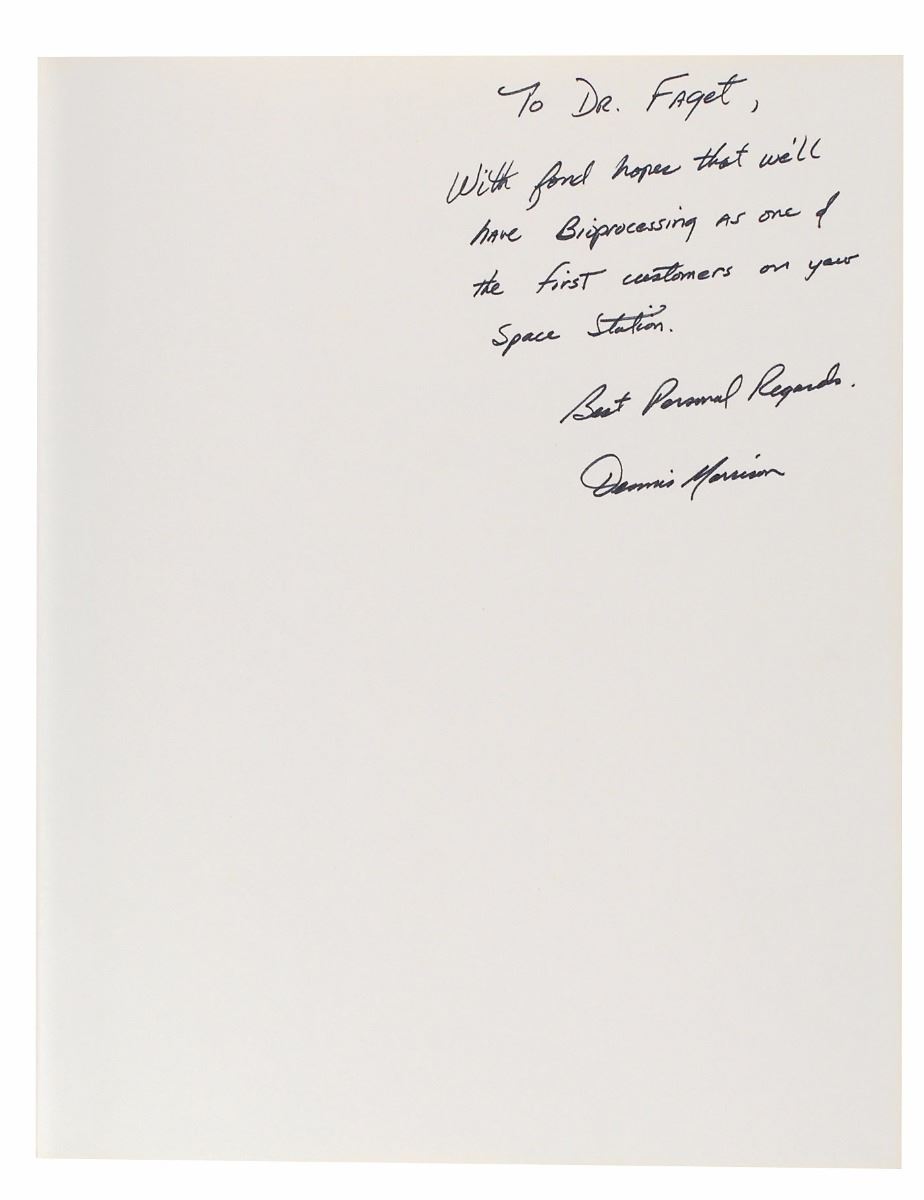 To DR. FAget,
With fond hopes that we'll
have Bioprocessing as one of
the first customers on your
Space Station.
Best Personal Regards.
Dennis Morrison